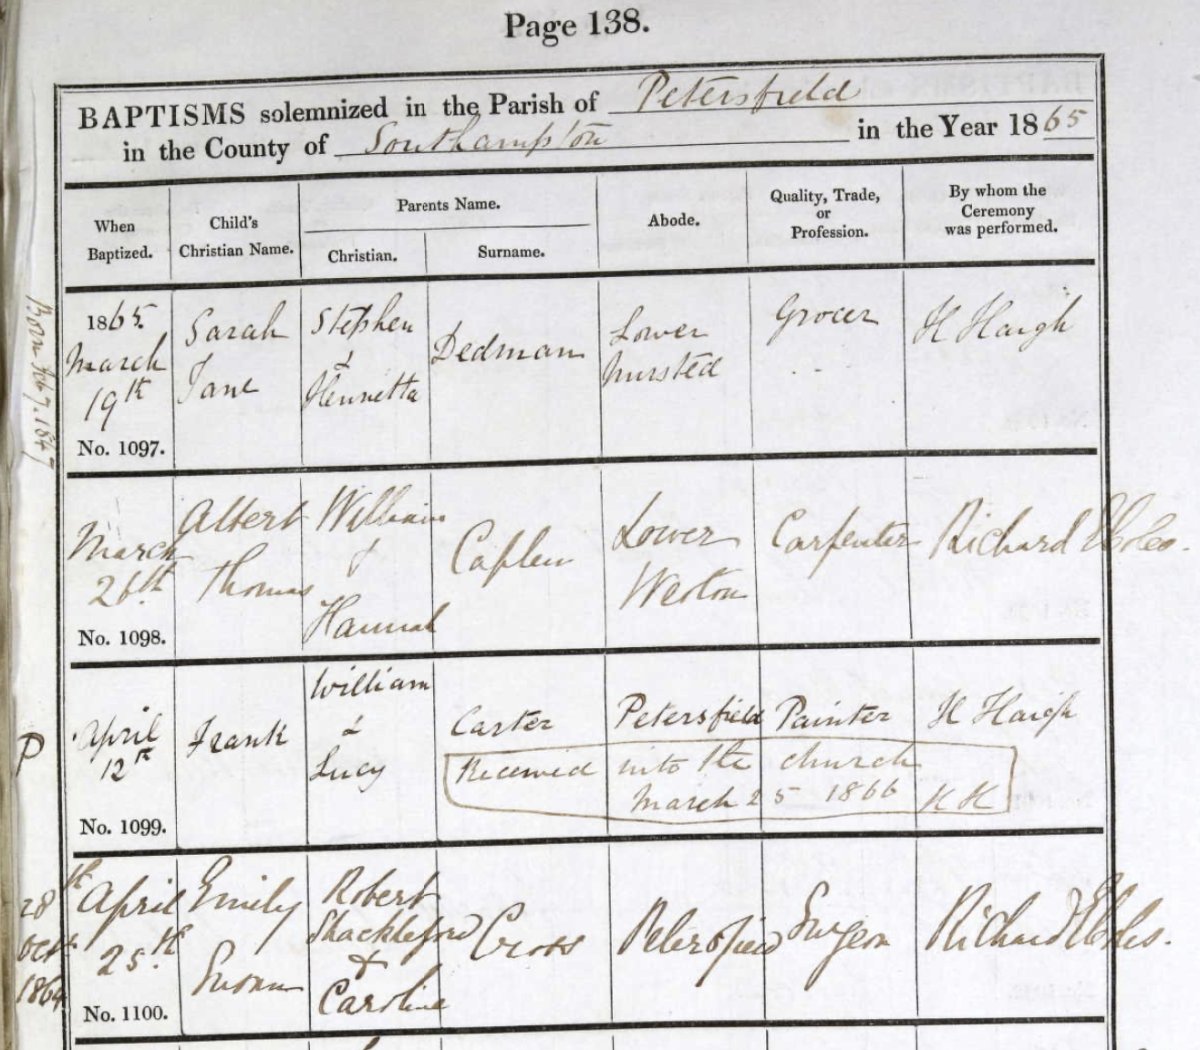 Page 138.
BAPTISMS solemnized in the Parish of Petersfield
in the County of Southampton in the Year 1865
When Baptized.
Child's Christian Name.
Parents Name.
Christian.
Surname.
Abode.
Quality, Trade, or Profession.
By whom the Ceremony was performed.
Born Feb 7. 1847
1865. March 19th No. 1097.
Sarah Jane
Stephen & Henrietta
Dedman
Lower Nursted
Grocer
H Haigh
March 26th No. 1098.
Albert Thomas
William & Hannah
Caplen
Lower Weston
Carpenter
Richard
P
April 12th No. 1099.
Frank
William & Lucy
Carter
Petersfield
Painter
H Haigh
Received into the church
March 25 1866 H H
28th Octr 1864
April 25th No. 1100.
Emily
Robert Shackleford & Caroline
Cross
Petersfield
Surgeon
Richard